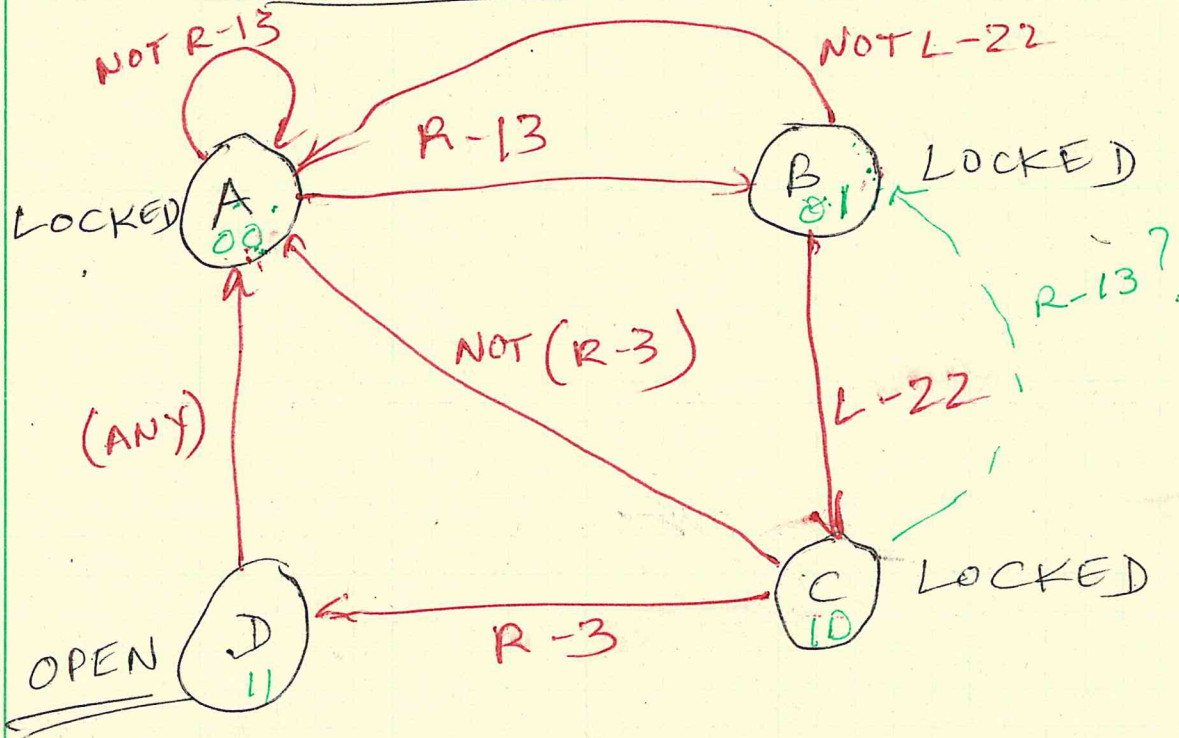 NOT R-13
NOT L-22
R-13
LOCKED
A
00
B
01
LOCKED
R-13?
NOT (R-3)
(ANY)
L-22
C
10
LOCKED
R-3
OPEN
D
11